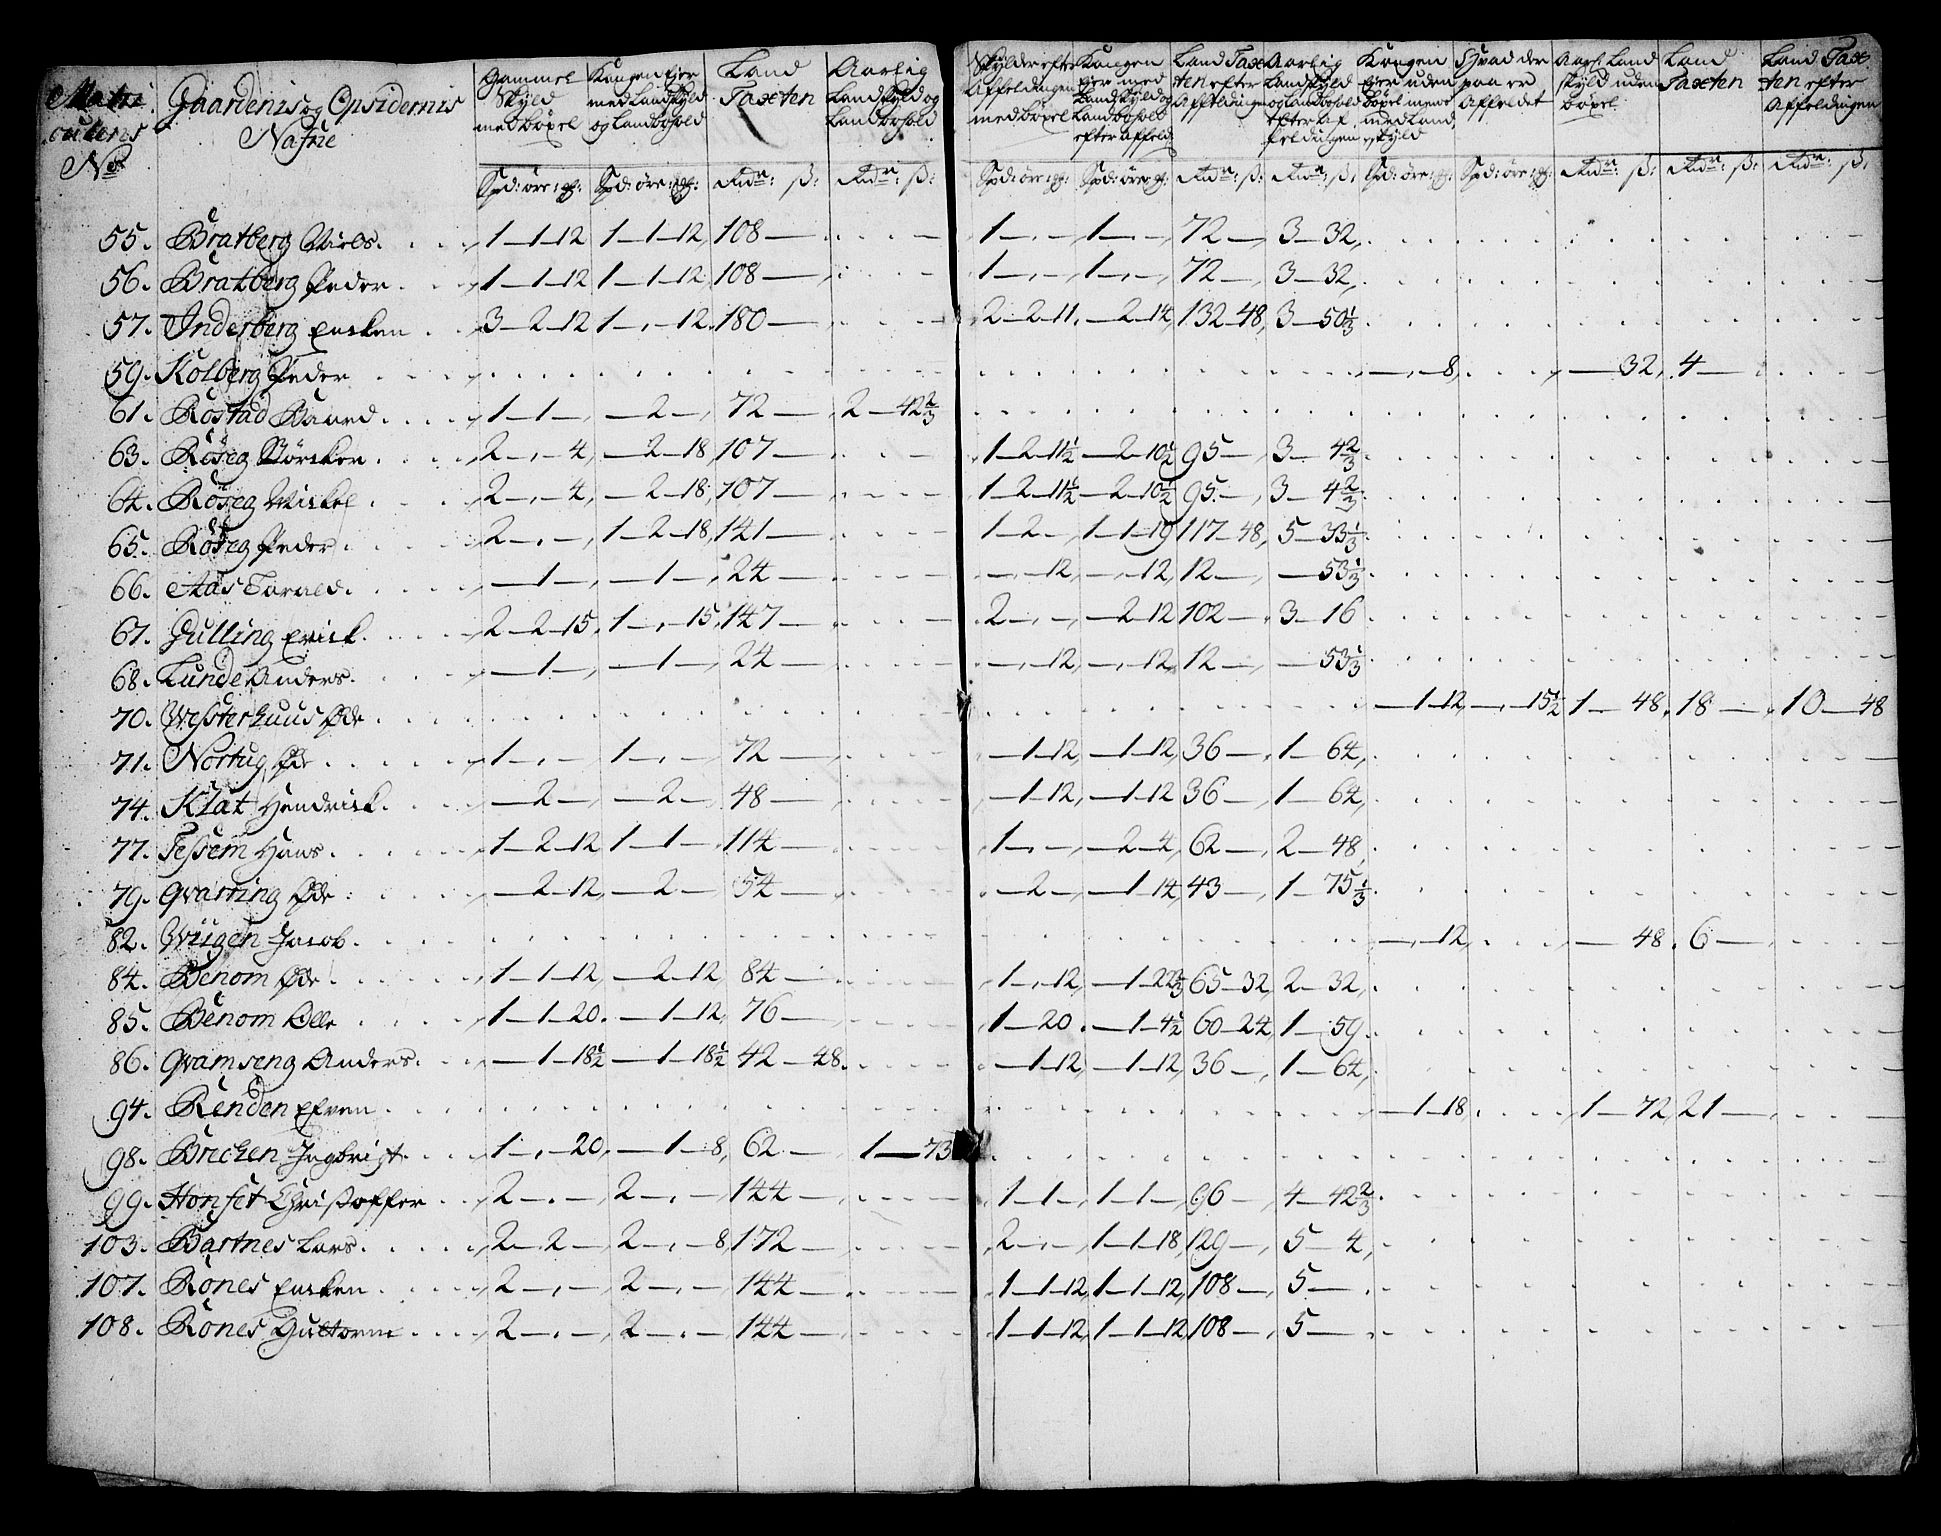 Matri
culens
No
Gaardenis og Opsidernis
Nafne
Gammel
Skyld
med böxel
Kongen Ejer
med Landskyld
og Landbohold
Land
Taxten
Aarlig
Landskyld og
Landbohold
Skylder efter
Affeldingen
med böxel
Kongen
Ejer med
Landskyld og
Landbohold
efter Affeld
Land Tax
ten efter
Affeldingen
Aarlig
Landskyld
og Landbohold
efter af
feldingen
Kongen
Ejer uden
böxel mens
med Land
skyld
Hvad der
paa er
Affeldet
Aarl: Land
skyld uden
böxel
Land
Taxten
Land Tax
ten efter
Affeldingen
Spd: öre: g: Spd: öre: g: Rdr: ß: Rdr: ß: Spd: öre: g: Spd: öre: g: Rdr: ß: Rdr: ß: Spd: öre: g: Spd: öre: g: Rdr: ß: Rdr: ß: Rdr: ß:
55. Bratberg Niels. 1—1—12 1—1—12 108— 1—.— 1—.— 72— 3—32
56. Bratberg Peder. 1—1—12 1—1—12 108— 1—.— 1—.— 72— 3—32
57. Inderberg Encken 3—2—12 1—.—12 180— 2—2—11 —2—14 132—48 3—50 1/3
59. Kolberg Peder —.—8 —32 4—
61. Röstad Baard 1—1— —2— 72— 2—42 2/3
63. Röseg Störcker 2—.—4 —2—18 107— 1—2—11 1/2 —2—10 1/2 95— 3—4 2/3
64. Röseg Mickel 2—.—4 —2—18 107— 1—2—11 1/2 —2—10 1/2 95— 3—4 2/3
65. Röseg Peder 2—.— 1—2—18 141— 1—2— 1—1—19 117—48 5—33 1/3
66. Aas Torald —1— —1— 24— —.—12 —.—12 12— —53 1/3
67. Gulling Erick 2—2—15 1—.—15 147— 2—.— —2—12 102— 3—16
68. Lunde Anders —1— —1— 24— —.—12 —.—12 12— —53 1/3
70. Westerhuus Öde —1—12 —.—15 1/2 1—48 18— 10—48
71. Nortug Öde 1—.— 1—.— 72— —1—12 —1—12 36— 1—64
74. Klat Hendrick —2— —2— 48— —1—12 —1—12 36— 1—64
77. Tessem Hans 1—2—12 1—1— 114— 1—.— —2—4 62— 2—48
79. Qvarring Öde —2—12 —2— 54— —2— —1—14 43— 1—75 1/3
82. Wiigen Jacob —.—12 —48 6—
84. Benom Öde 1—1—12 —2—12 84— 1—.—12 —1—22 2/3 65—32 2—32
85. Benom Olle 1—1—20 —1—12 76— 1—20 —1—4 1/2 60—24 1—59
86. Qvamseng Anders —1—18 1/2 —1—18 1/2 42—48 —1—12 —1—12 36— 1—64
94. Renden Efven —1—18 1—72 21—
98. Brechen Ingbrigt 1—.—20 —1—8 62— 1—73
99. Honset Christoffer 2—.— 2—.— 144— 1—1— 1—1— 96— 4—42 2/3
103. Bartnes Lars 2—2— 2—.—8 172— 2—.— 1—1—18 129— 5—4
107. Rönes Encken 2—.— 2—.— 144— 1—1—12 1—1—12 108— 5—
108. Rönes Guttorm 2—.— 2—.— 144— 1—1—12 1—1—12 108— 5—